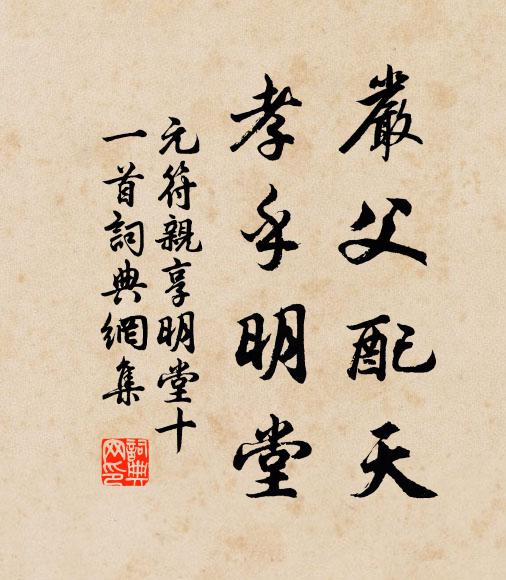 嚴父配天
孝乎明堂
元符親享明堂十
一首詞典網集
詞典
网印